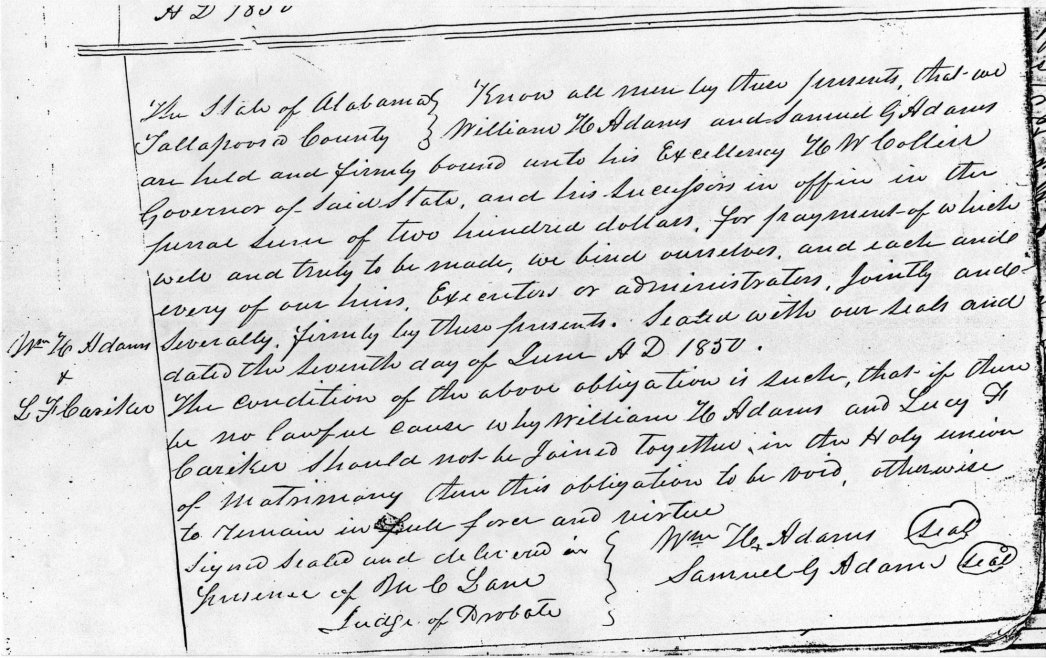 A D 1850
The State of Alabama } Know all men by these presents, that we
Tallapoosa County } William H Adams and Samuel G Adams
are held and firmly bound unto his Excellency H W Collier
Governor of said State, and his Sucessors in office in the
penal sum of two hundred dollars, for payment of which
well and truly to be made, we bind ourselves, and each and
every of our heirs, Executors or administrators, Jointly and
Severally, firmly by these presents. Sealed with our seals and
dated the Seventh day of June A D 1850.
Wm H Adams
&
L F Cariker
The condition of the above obligation is such, that if there
be no lawful cause why William H Adams and Lucy F
Cariker should not be Joined together, in the Holy union
of Matrimony then this obligation to be void, otherwise
to remain in full force and virtue
Signed Sealed and delivered in } Wm H Adams Seal
presence of M C Lane } Samuel G Adams Seal
Judge of Probate